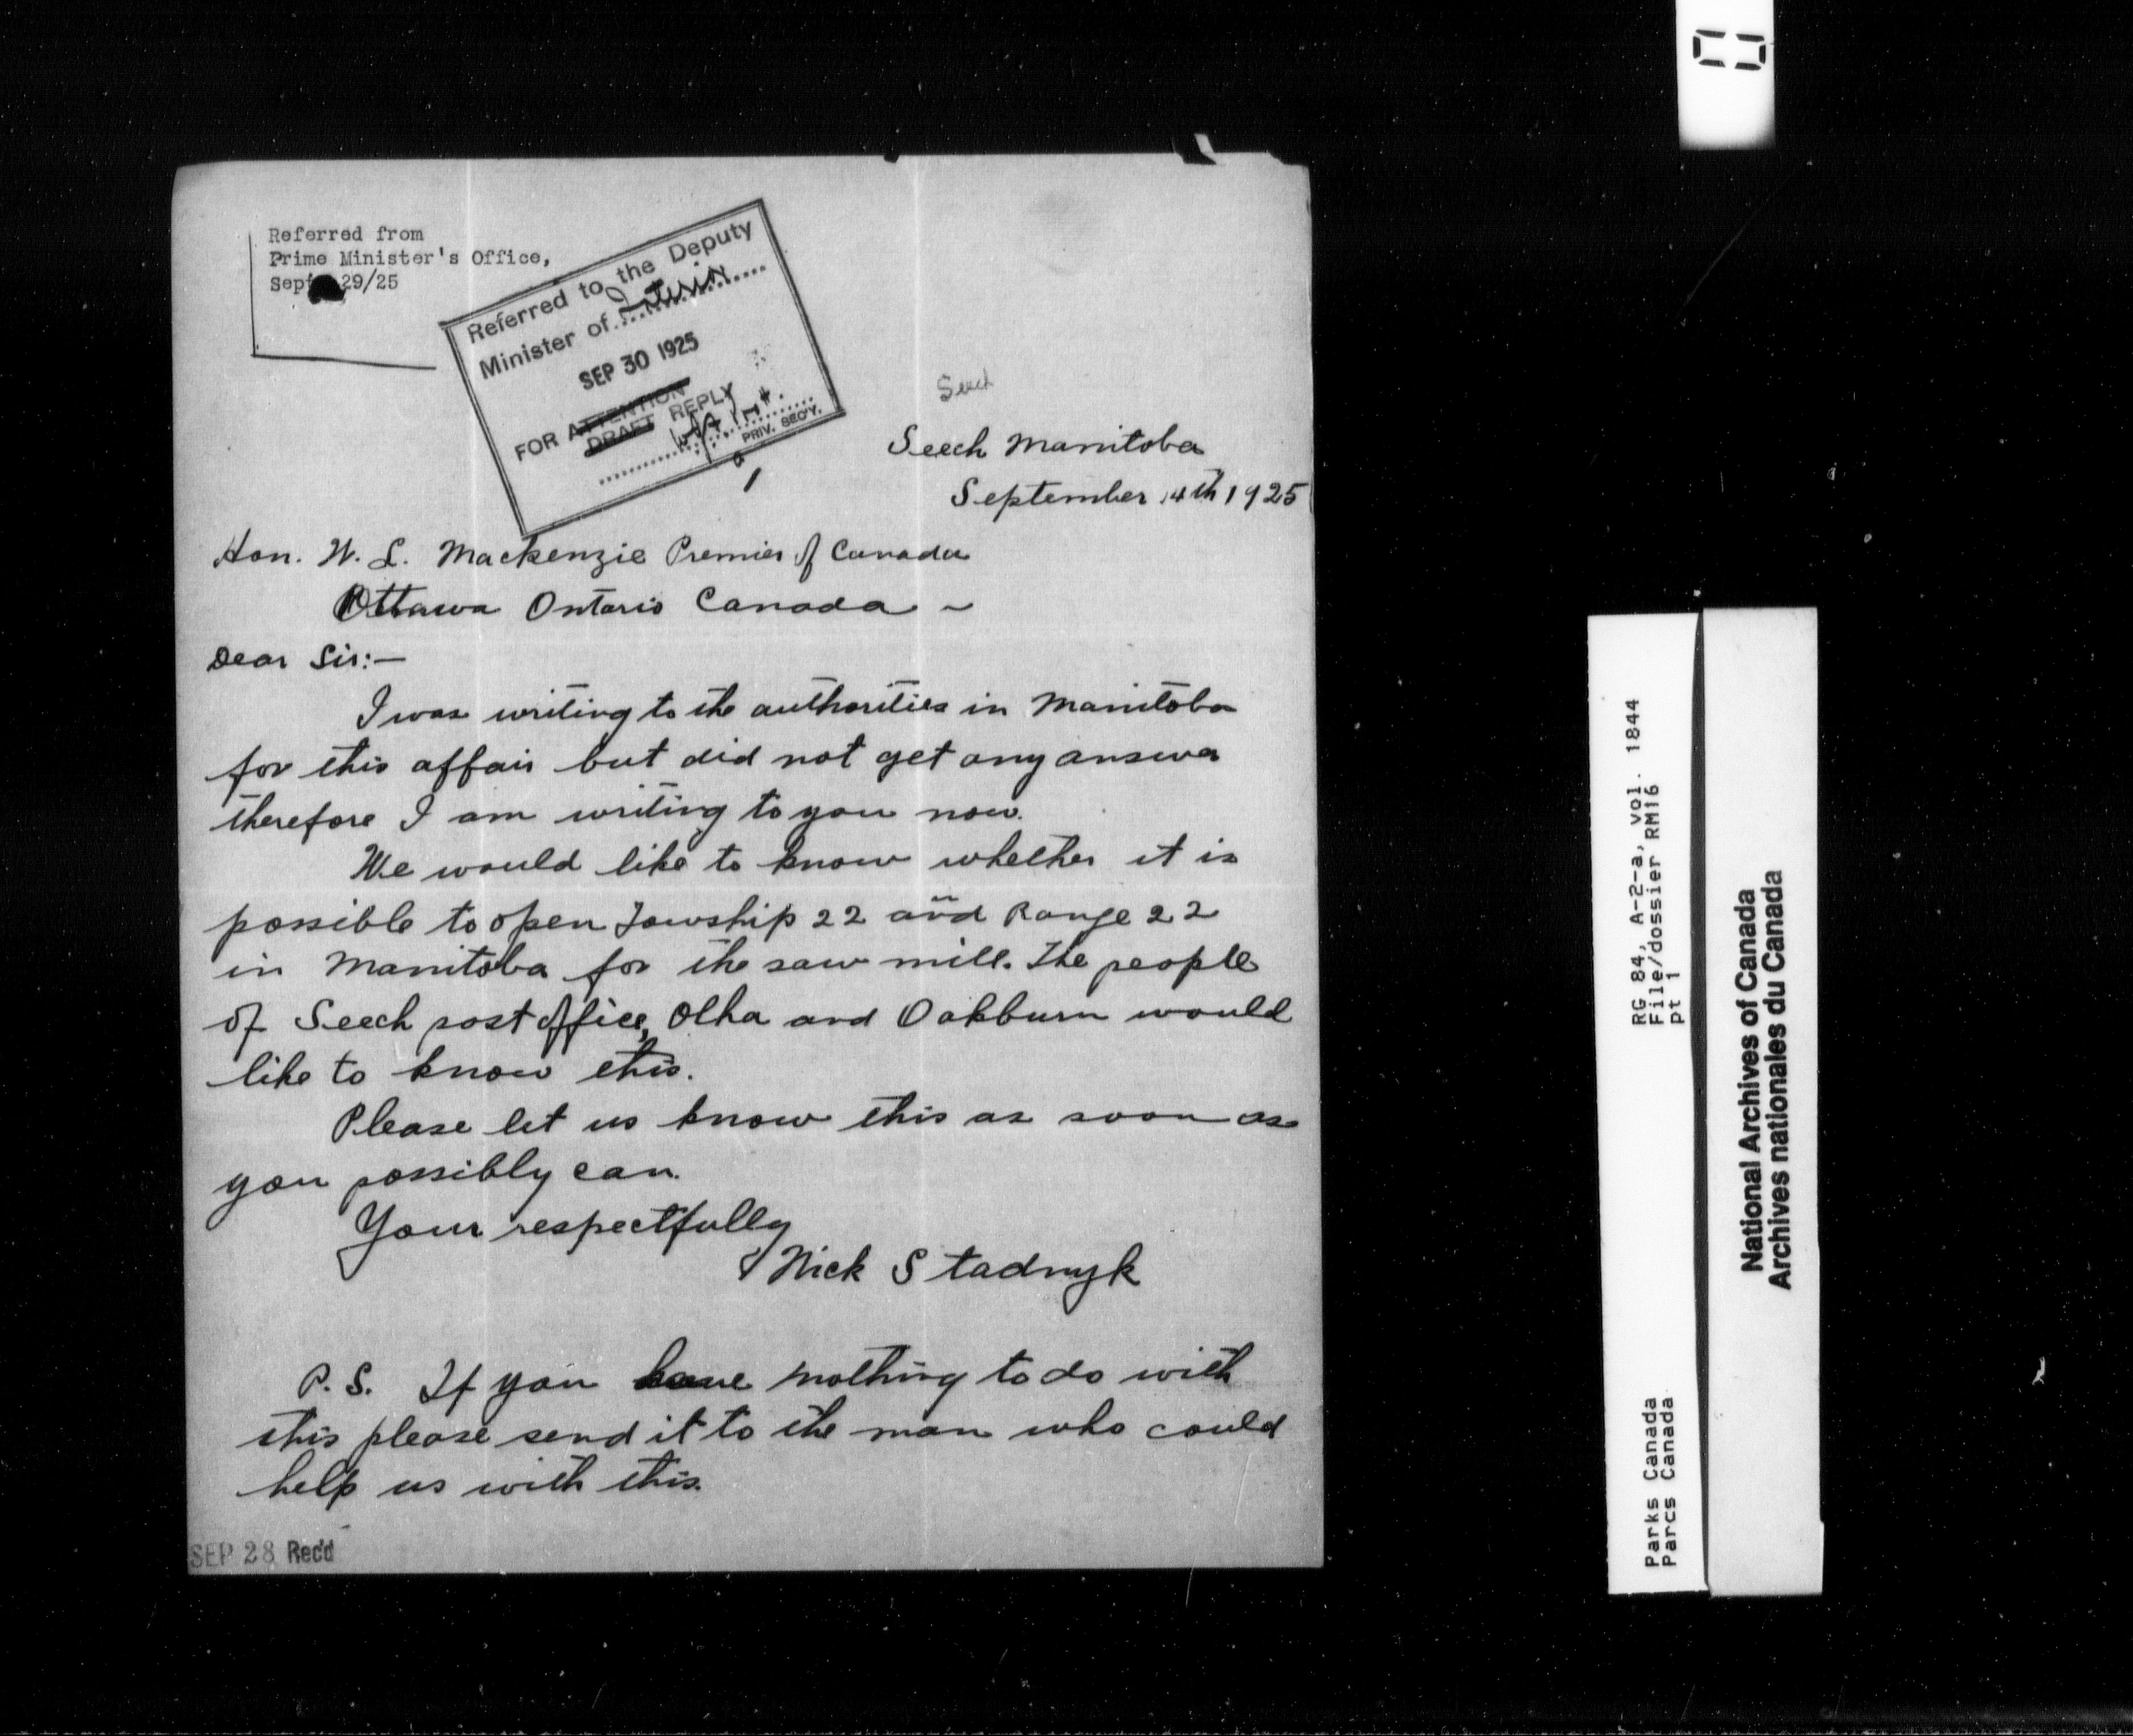 Referred from
Prime Minister's Office,
Sept 29/25
Referred to the Deputy
Minister of Interior
SEP 30 1925
FOR ATTENTION
DRAFT REPLY
PRIV. SEC'Y.
Seech
Seech Manitoba
September 14th 1925
Hon. W. L. Mackenzie Premier of Canada
Ottawa Ontario Canada ~
Dear Sir:—
I was writing to the authorities in Manitoba
for this affair but did not get any answer
therefore I am writing to you now.
We would like to know whether it is
possible to open Towship 22 and Range 22
in Manitoba for the saw mill. The people
of Seech post office, Olha and Oakburn would
like to know this.
Please let us know this as soon as
you possibly can.
Your respectfully
Nick Stadnyk
P. S. If you have nothing to do with
this please send it to the man who could
help us with this.
SEP 28 Rec'd
RG 84, A-2-a, vol. 1844
File/dossier RM16
pt 1
Parks Canada
Parcs Canada
National Archives of Canada
Archives nationales du Canada